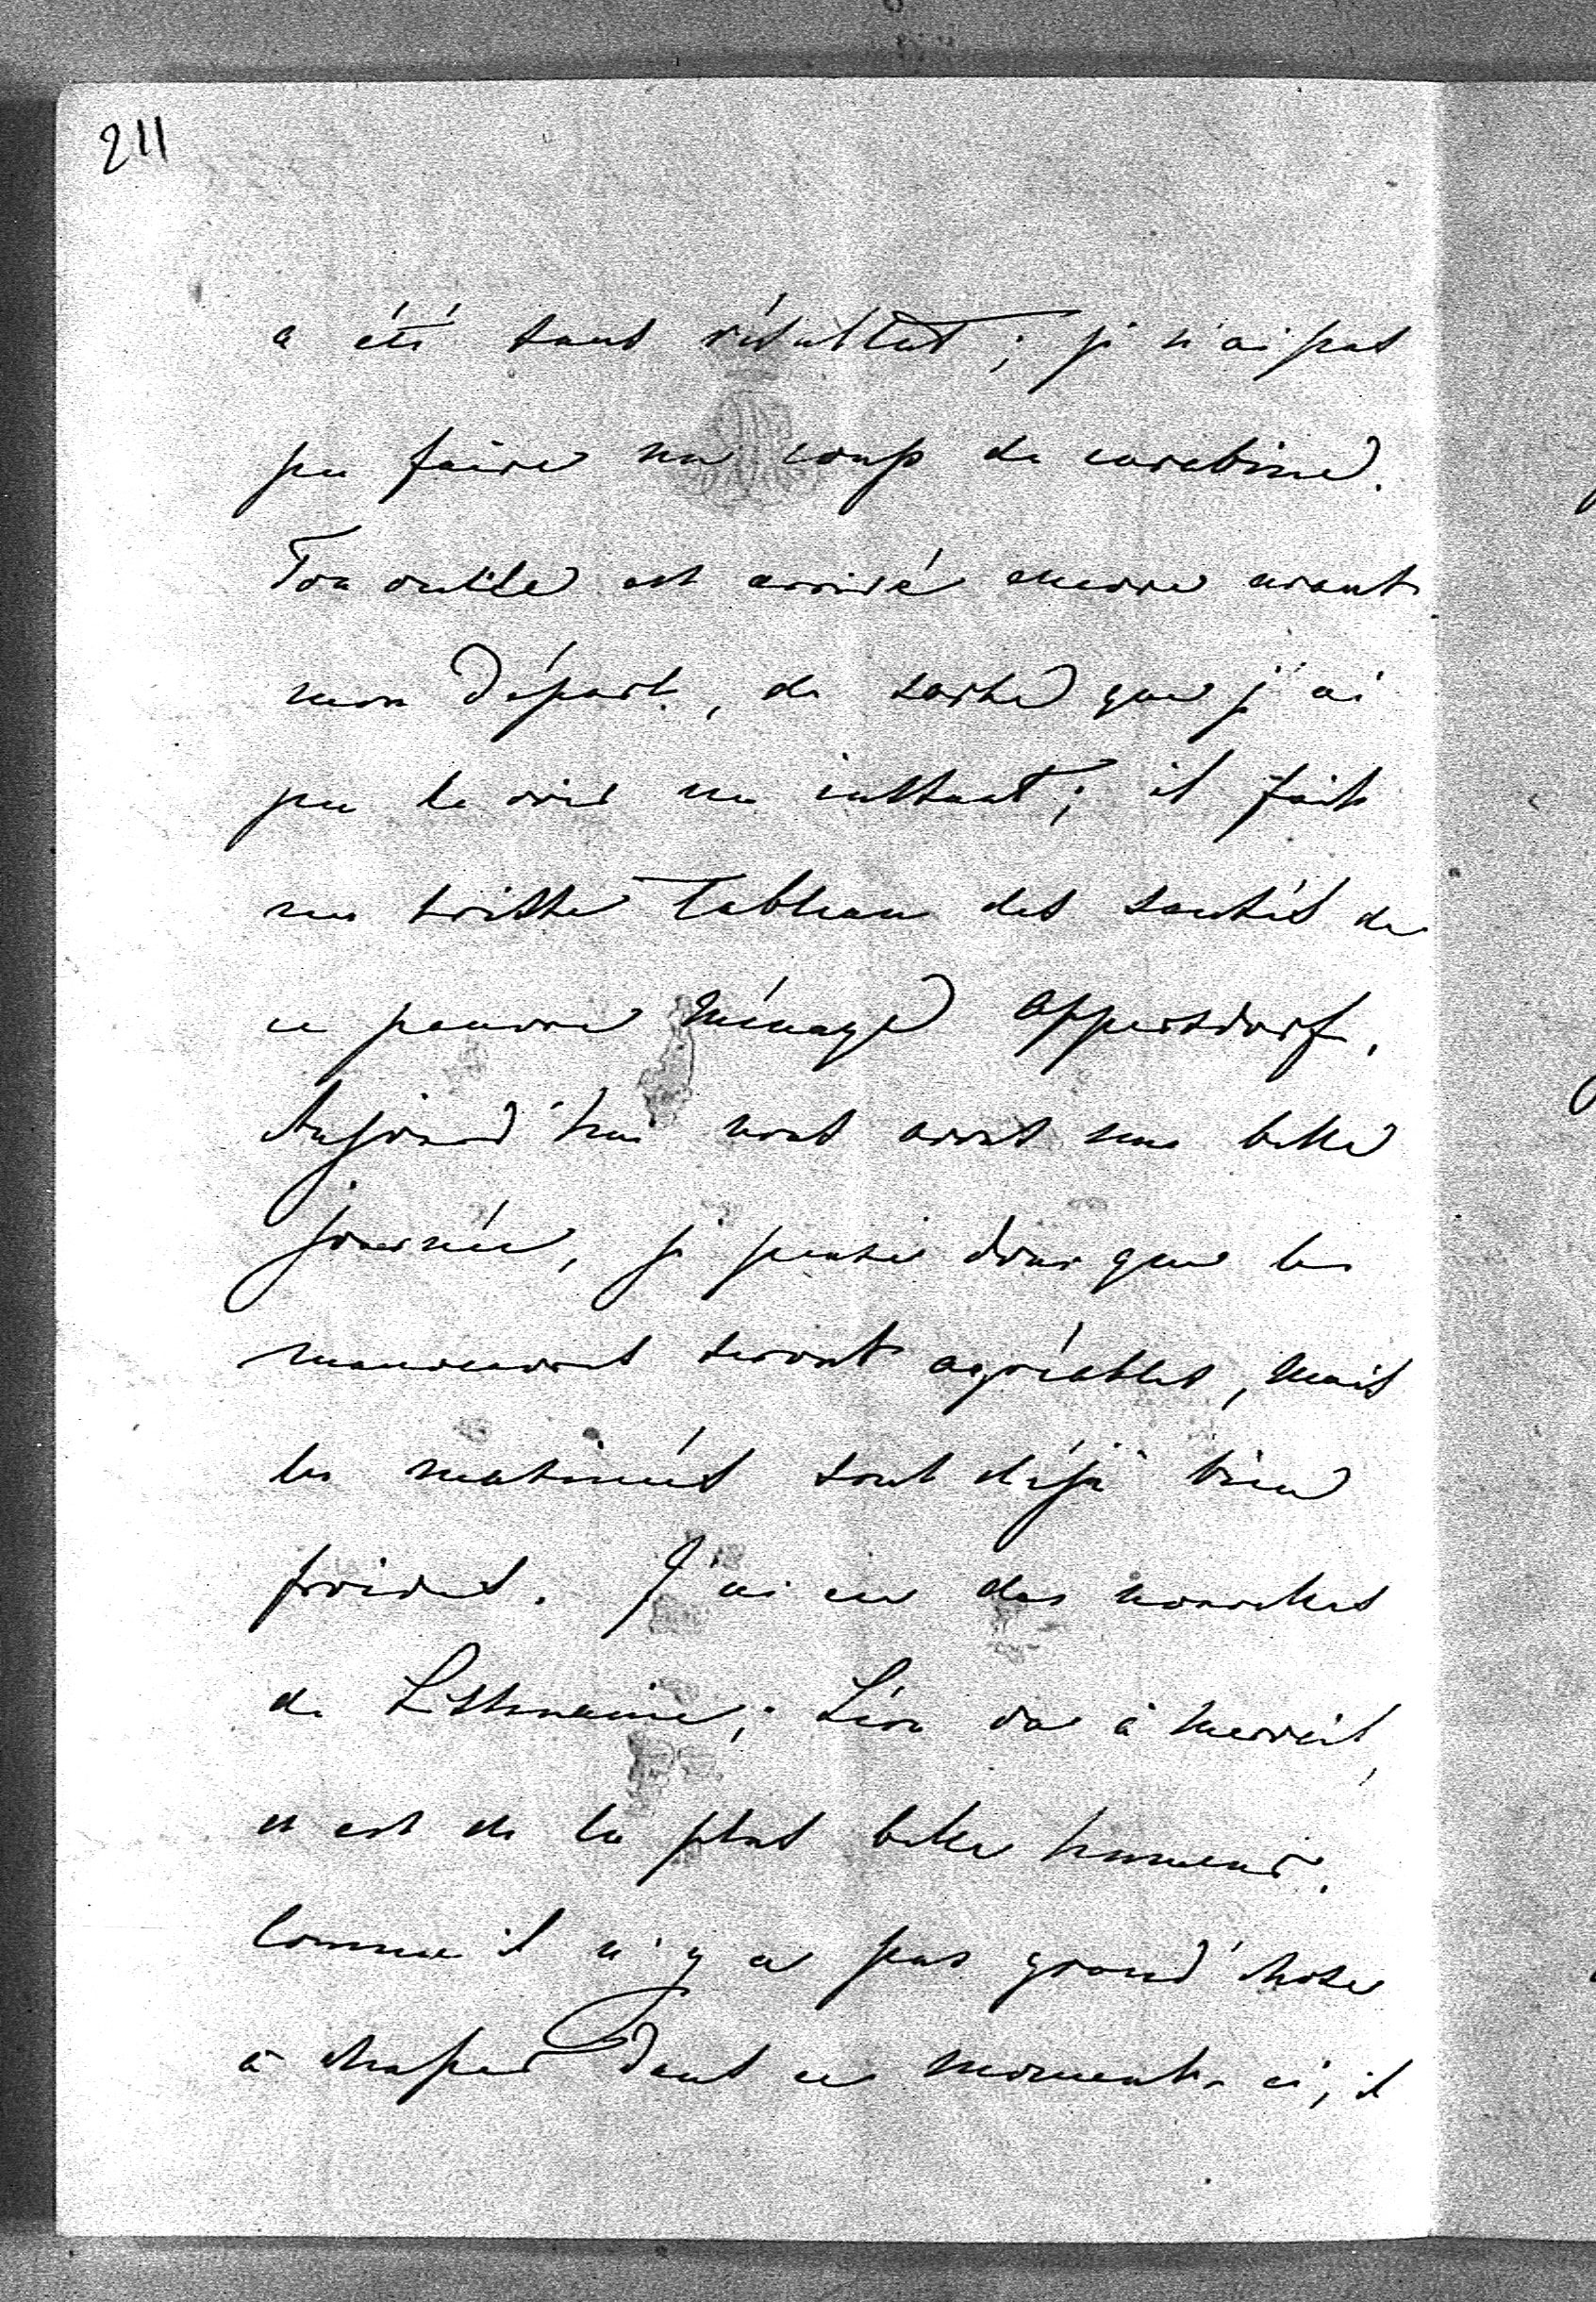 211
a été sans résultat; je n'ai pas
pu faire un coup de carabine.
Ton oncle est arrivé encore avant
mon départ, de sorte que j'ai
pu le voir un instant; il fait
un triste tableau des santés de
ce pauvre ménage Oppersdorf.
Aujourd'hui nous avons une belle
journée, je pense donc que les
manoeuvres seront agréables, mais
les matinées sont déjà bien
froides. J'ai eu des nouvelles
de Lithuanie; Léon va à merveil,
et est de la plus belle humeur.
Comme il n'y a pas grand'chose
à chasser dans ce moment-ci, il